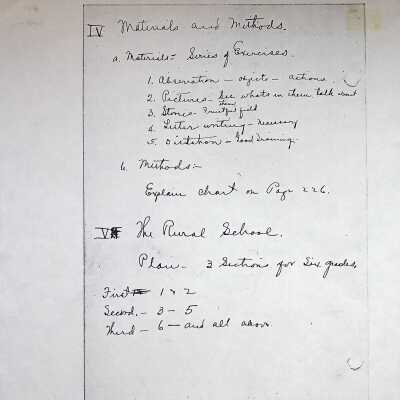 IV Materials and Methods.
a. Materials - Series of Exercises.
1. Abservation - objects - actions.
2. Pictures - See whats in them, talk about them
3. Stories - Fruitful field
4. Letter writing - necessary
5. Dictation - Good training.
b. Methods:-
Explain chart on Page 226.
V The Rural School.
Plan - 3 Sections for Six grades.
First - 1 & 2
Second. - 3 - 5
Third - 6 - and all above.